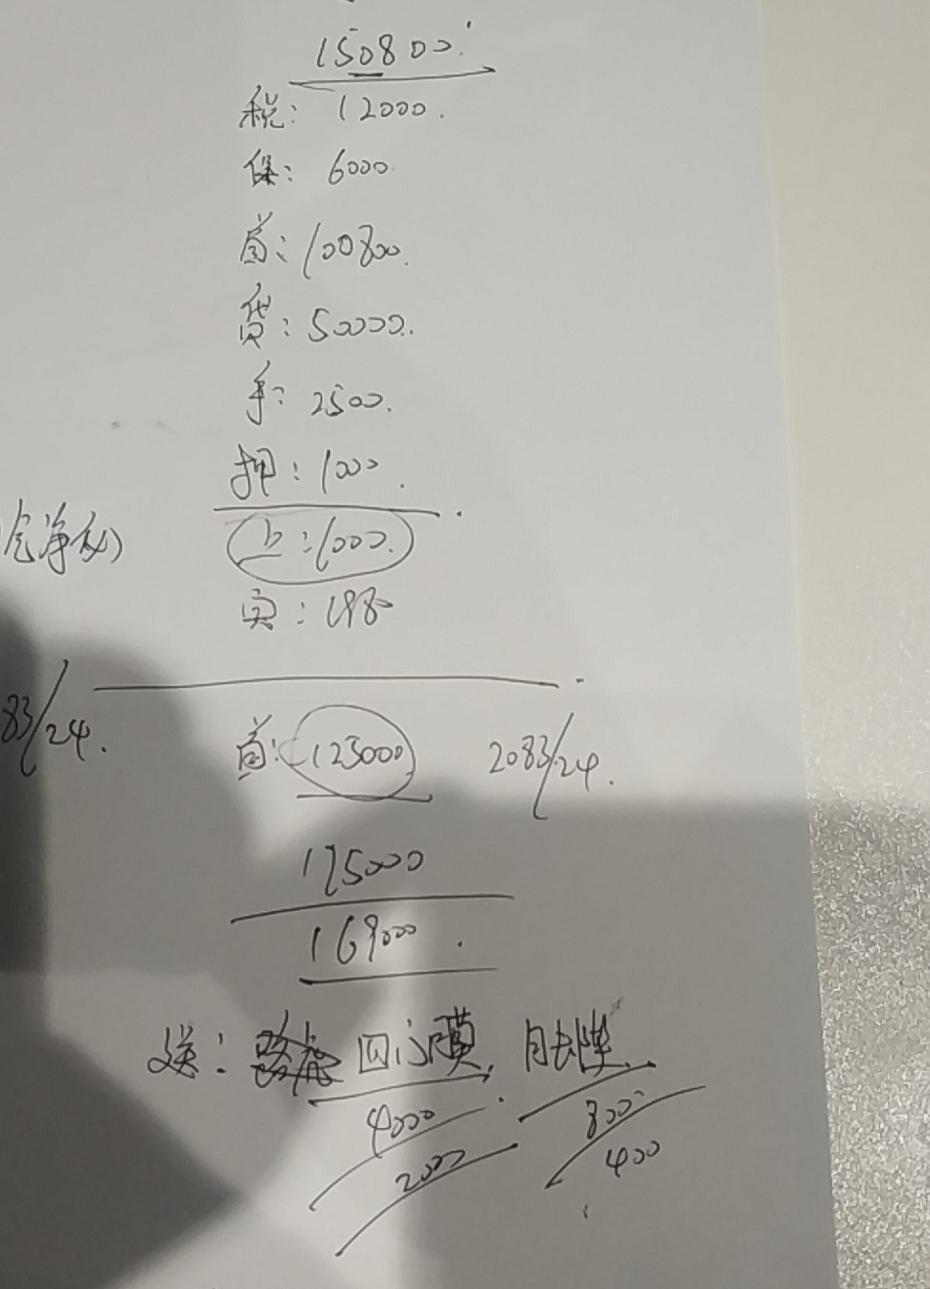 150800.
税: 12000.
保: 6000.
首: 100800.
贷: 50000.
手: 2500.
押: 1000.
上: 1000.
198
83/24. 首: 123000 2083/24.
175000
169000.
送:
4000 800
2000 400